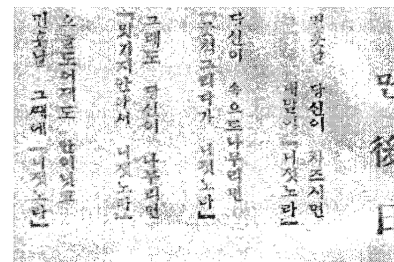 먼 後日
당신이 차즈시면
내말이 「니젓노라」
당신이 속으로나무리면
그리다가 니젓노라」
그래도 당신이 나무리면
「밋기지안아서 니젓노라」
오늘도어제도 안이닛고
그때에 「니젓노라」